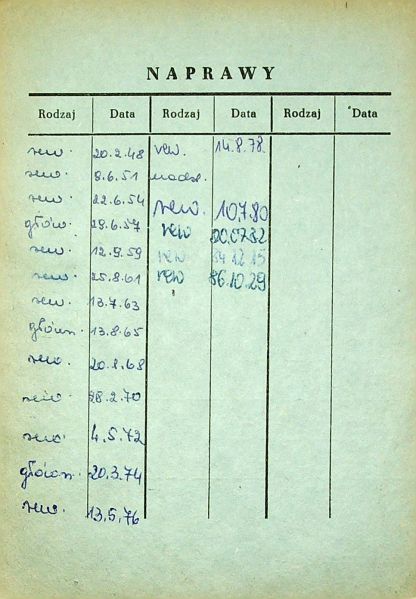 NAPRAWY
Rodzaj Data Rodzaj Data Rodzaj Data
rew. 20.2.48 rew. 14.8.78.
rew. 9.6.51
rew. 22.6.54 rew. 10.7.80
główn. 29.6.57 rew 20.07.82
rew. 12.9.59 rew 84 12 15
rew. 25.8.61 rew 86.10.29
rew. 13.7.63
główn. 13.8.65
rew. 20.8.68
rew. 28.2.70
rew. 4.5.72
główn. 20.3.74
rew. 13.5.76